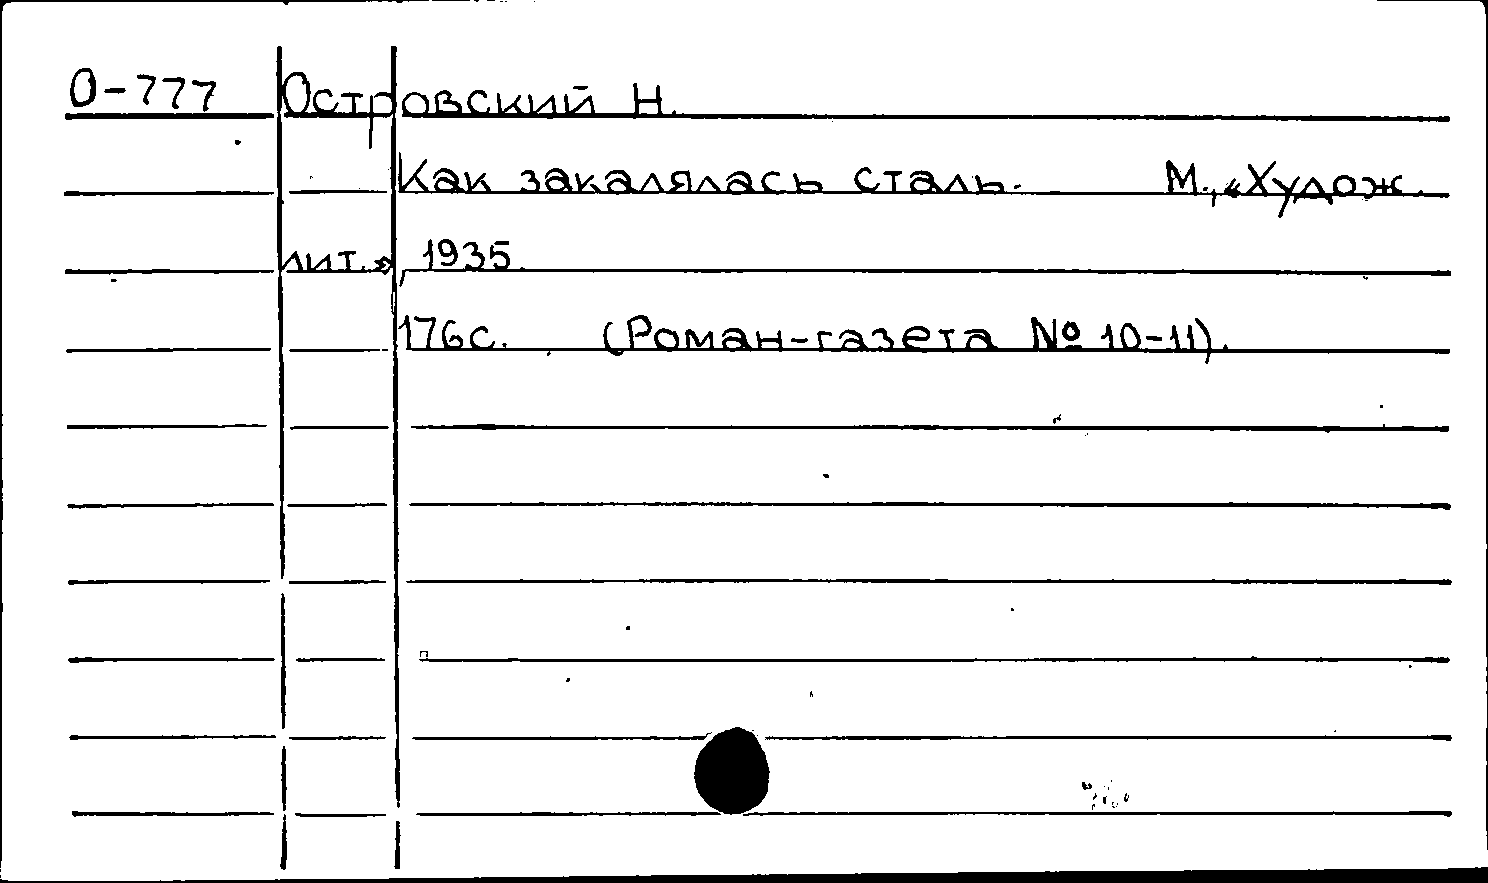 О-777 Островский Н.
Как закалялась сталь. М., «Худож.
лит.», 1935.
176с. (Роман-газета № 10-11).